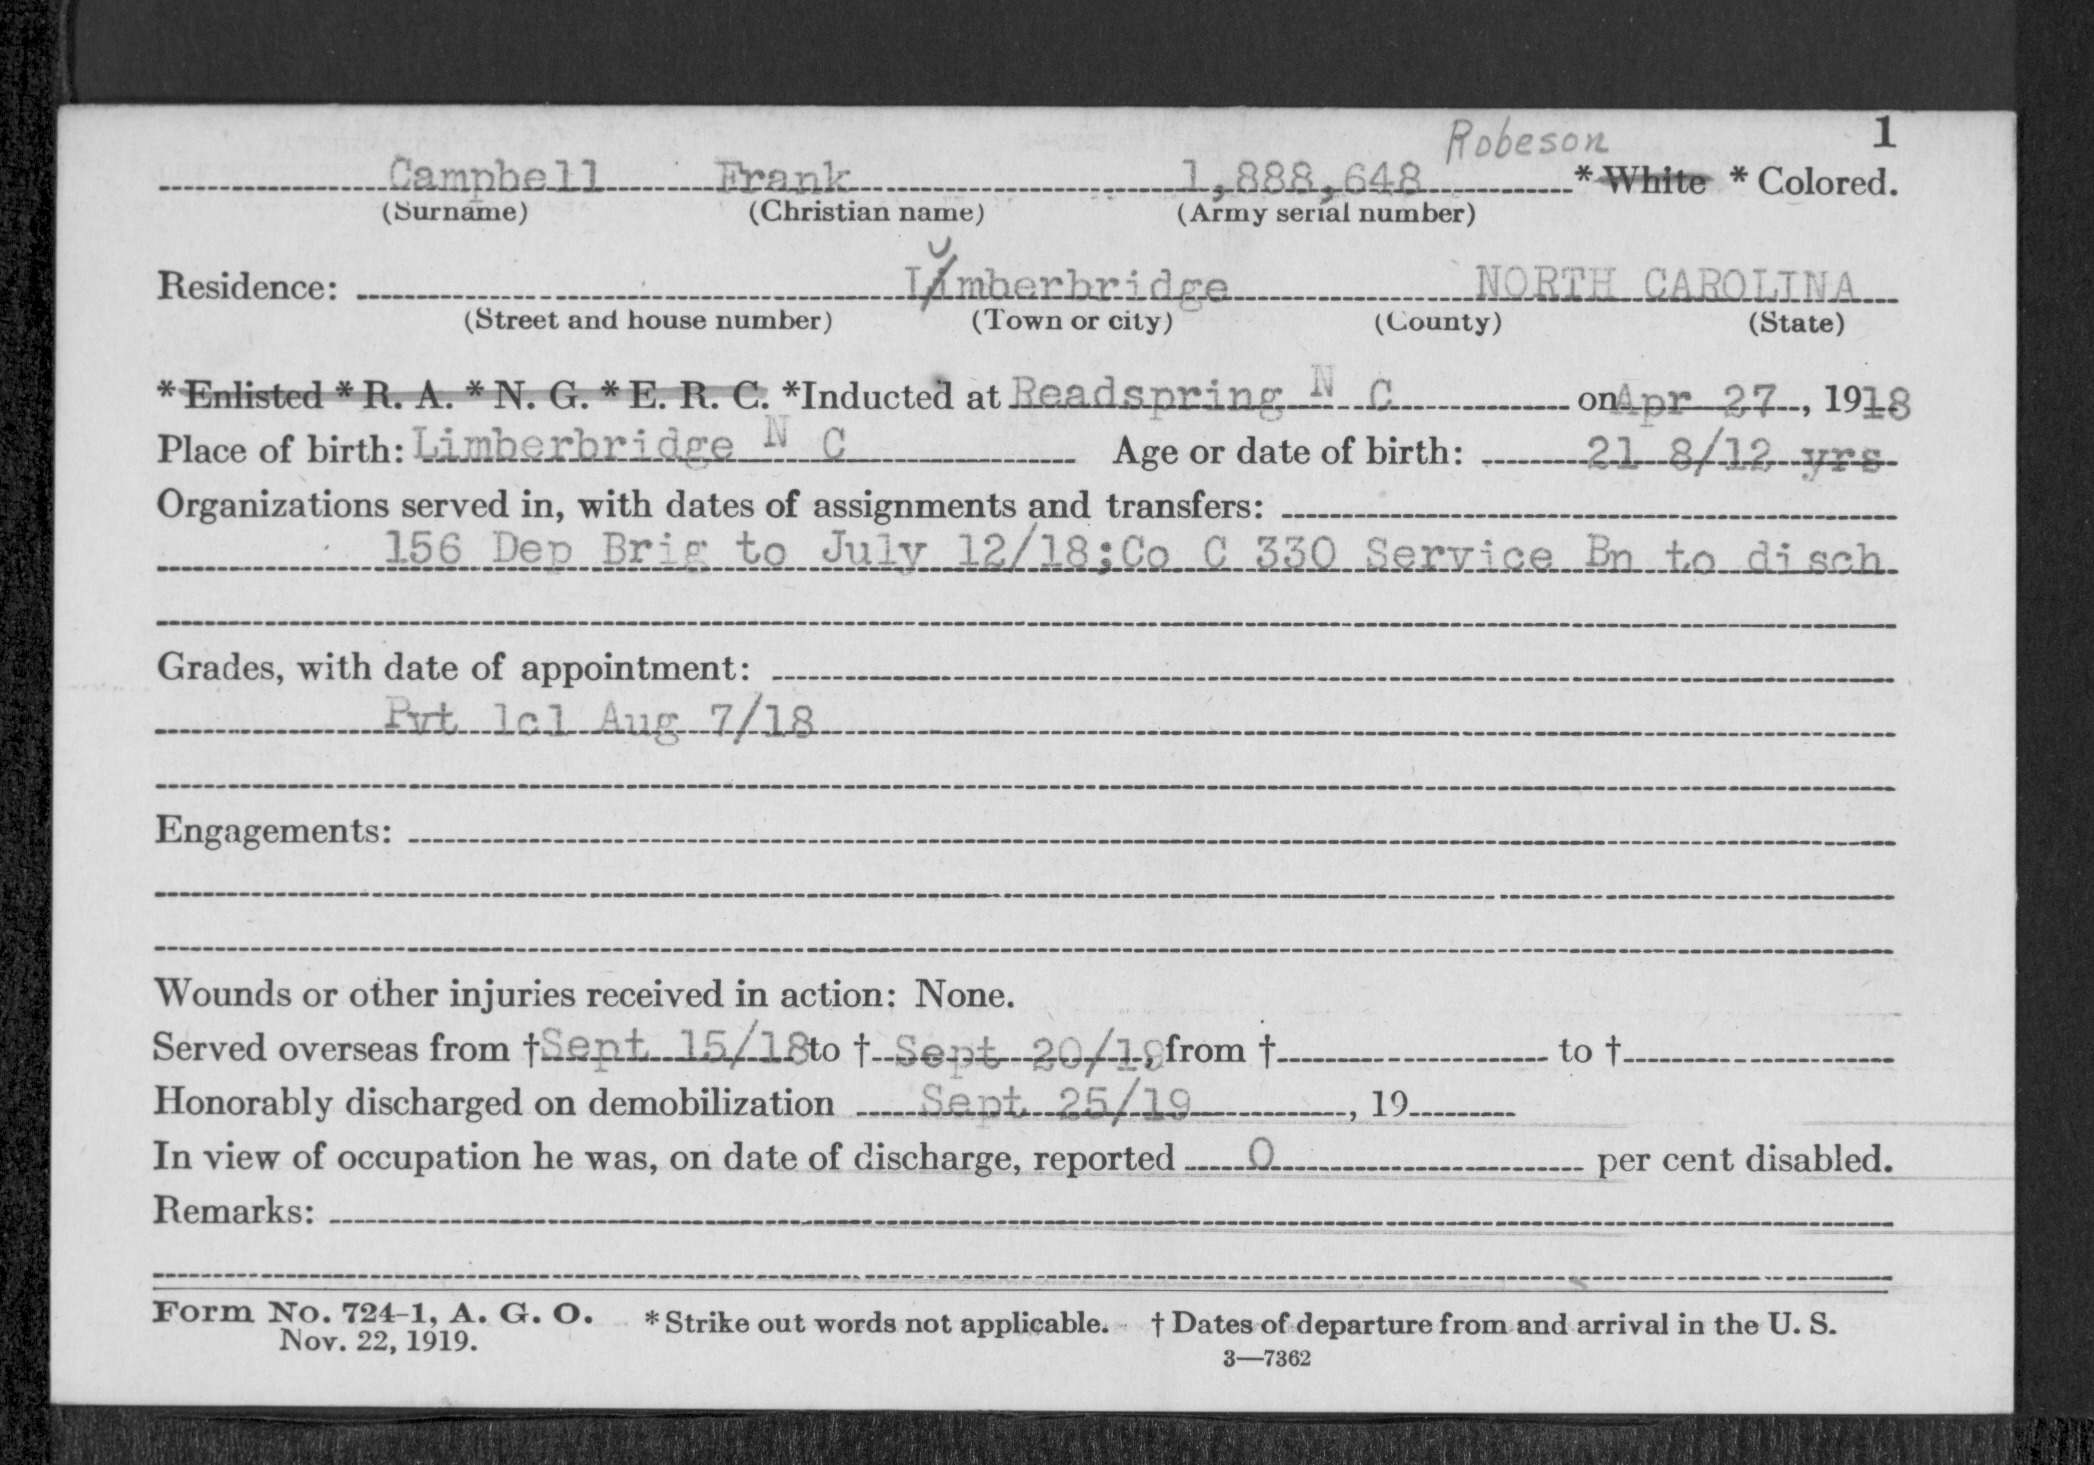 Robeson 1
Campbell Frank 1,888,648 * White * Colored.
(Surname) (Christian name) (Army serial number)
u
Residence: Limberbridge NORTH CAROLINA
(Street and house number) (Town or city) (County) (State)
* Enlisted * R. A. * N. G. * E. R. C. *Inducted at Readspring N C on Apr 27, 1918
Place of birth: Limberbridge N C Age or date of birth: 21 8/12 yrs
Organizations served in, with dates of assignments and transfers:
156 Dep Brig to July 12/18; Co C 330 Service Bn to disch
Grades, with date of appointment:
Pvt 1cl Aug 7/18
Engagements:
Wounds or other injuries received in action: None.
Served overseas from † Sept 15/18 to † Sept 20/19, from † to †
Honorably discharged on demobilization Sept 25/19, 19
In view of occupation he was, on date of discharge, reported 0 per cent disabled.
Remarks:
Form No. 724-1, A. G. O. * Strike out words not applicable. † Dates of departure from and arrival in the U. S.
Nov. 22, 1919.
3—7362